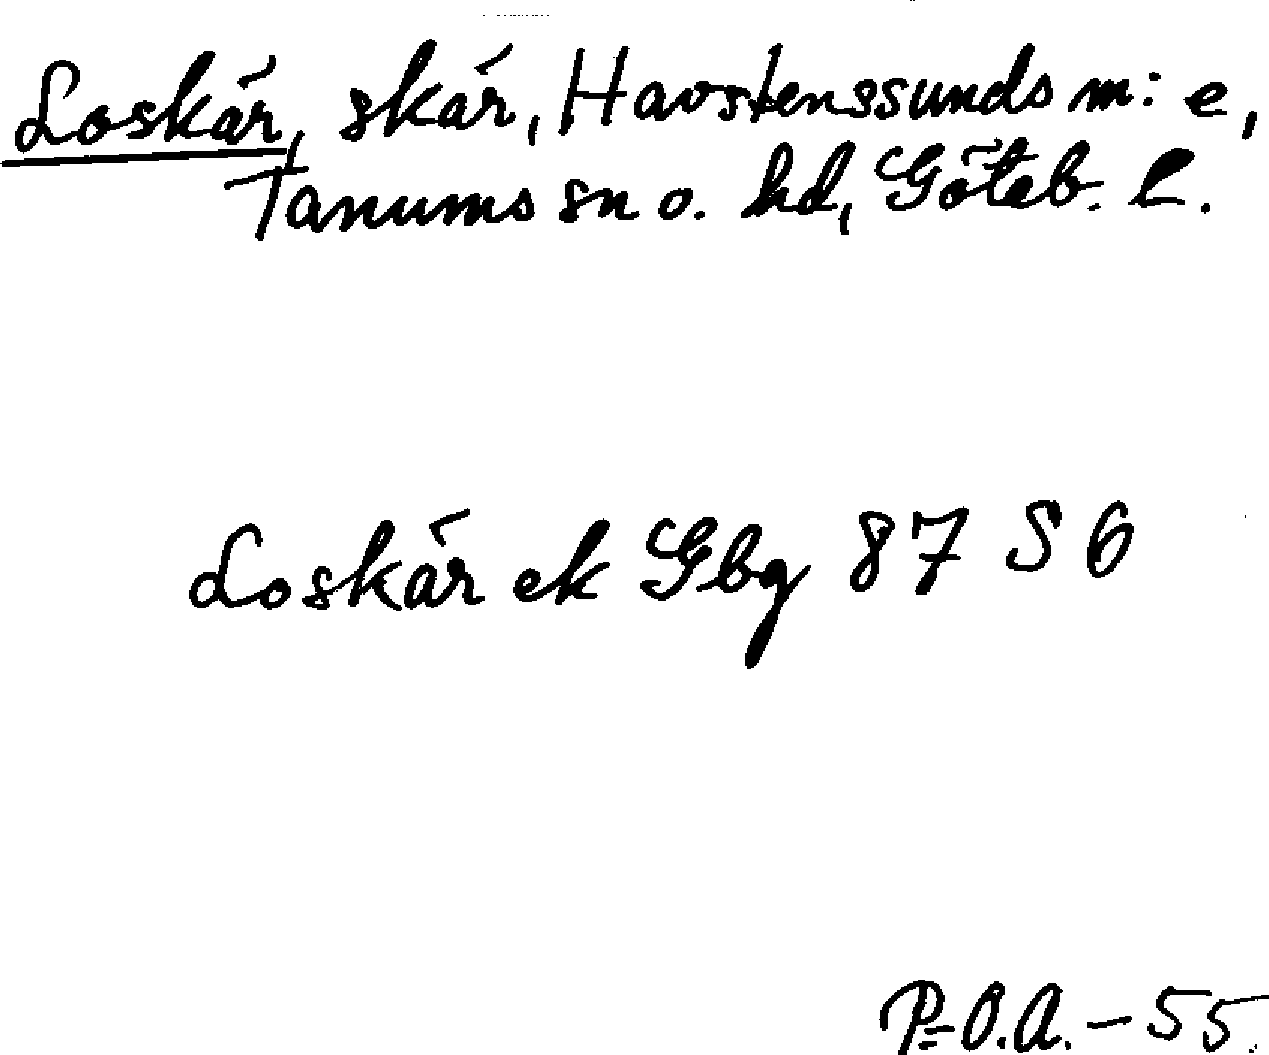 Loskär, skär, Havstenssunds m: e,
Tanums sn o. hd, Göteb. l.
Loskär ek Gbg 87 S 6
P-O.A.-55.